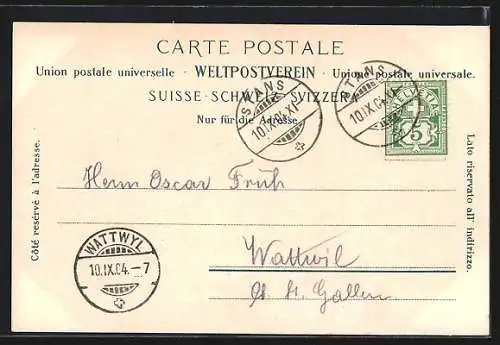 CARTE POSTALE
Union postale universelle · WELTPOSTVEREIN · Unione postale universale.
SUISSE · SCHWEIZ · SVIZZERA
Nur für die Adresse.
STANS
10.IX.04.XI
STANS
10.IX.04.
HELVETIA
5
Côté reservé à l'adresse.
Lato riservato all' indirizzo.
Herrn Oscar Früh
WATTWYL
10.IX.04.–7
Wattwil
Ct. St. Gallen